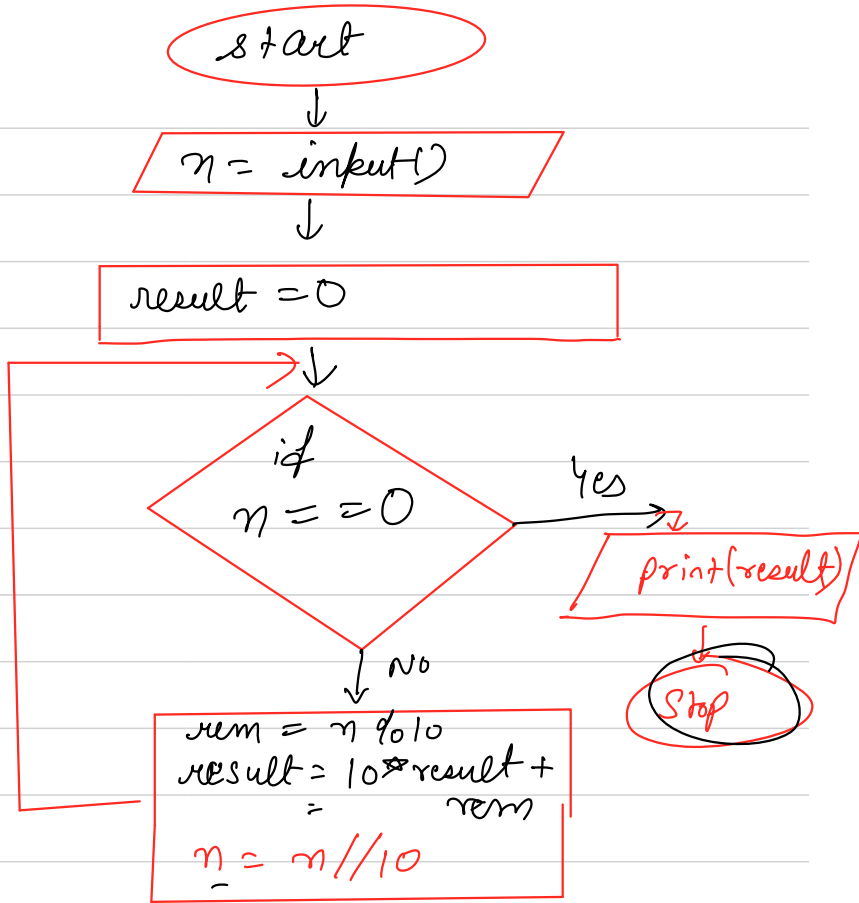 start
n = input()
result = 0
if
n == 0
Yes
print(result)
Stop
No
rem = n % 10
result = 10 * result +
rem
n = n // 10